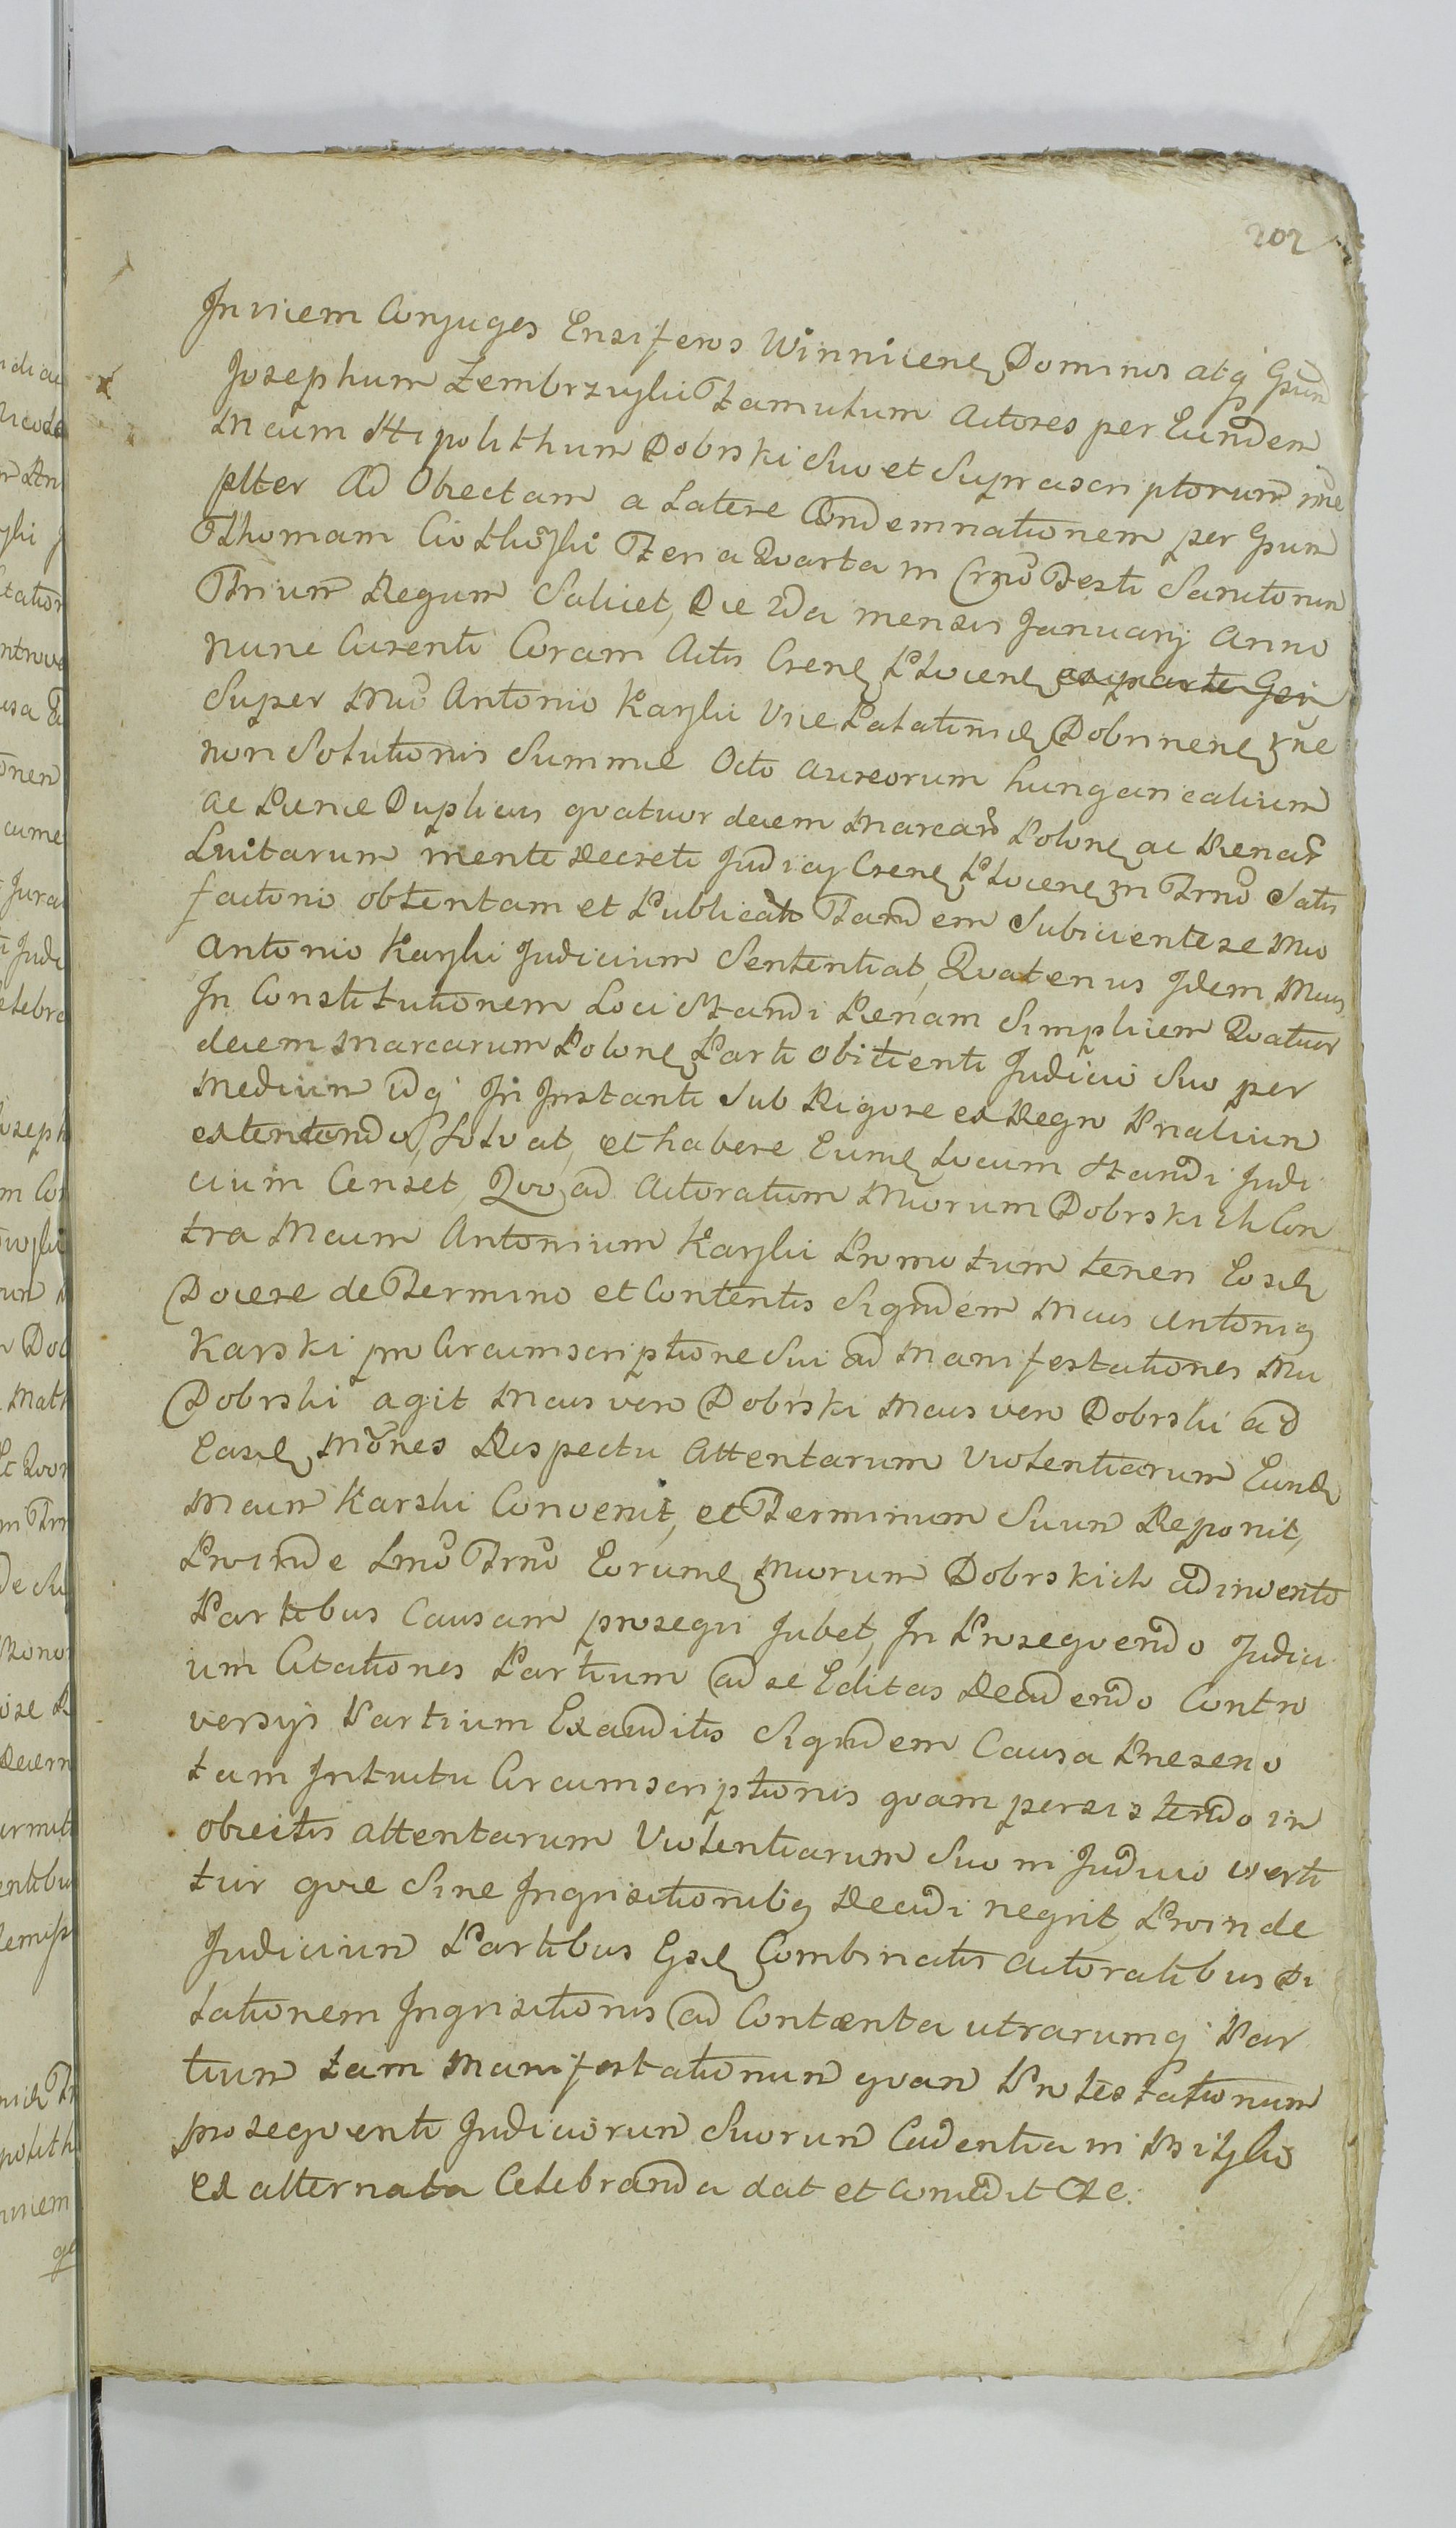 202
In vicem Conjuges Ensiferos Winnicens Dominos atq Gsum
Josephum Zembrzuski Famulum Actores per Eundem
Mcum Hipolithum Dobrski Suo et Suprascriptorum nne
plter Ad Obiectam a Latere Condemnationem per Gsum
Thomam Ciotkowski Feria Quarta in Crno Festi Sanctorum
Trium Regum Scilicet, Die 2da mensis January Anno
nunc Curenti Coram Actis Crens Plocens ex parte Gei
Super Mco Antonio Karski Vice Palatinid Dobrinens rne
non Solutionis Summe Octo aureorum hungaricalium
ac Pene Duplicis quatuor decem Marcar Polons ac Penar
Luitarum mente Decreti Judicy Crens Plocens in Trno Satis
factorio obtentam et Publicats Tandem Subiciente se Mco
Antonio Karski Judicium Sententiat, Quatenus Idem Mcus
In Constitutionem Loci Standi Penam Simplicem Quatuor
decem Marcarum Polons Parti Obiicienti Judicio Suo per
Medium idq In Instanti Sub Rigore ex Regno Prialium
extentendo, Solvat, et habere Eums Locum Standi Judi
cium Censet, Quo ad Actoratum Mcorum Dobrskich Con
tra Mcum Antonium Karski Promotum teneri Eosd
Docere de Termino et Contentis Siqudem Mcus Antoniq
Karski pro Circumscriptione Sui ad Manifestationes Mci
Dobrski agit Mcus vero Dobrski Mcus vero Dobrski ad
Easd Mones Respectu Attentarum Violentiarum Eund
Mcum Karski Convenit, et Terminum Suum Reponit,
Proinde Lmo Trno Eorums Mcorum Dobrskich adinvento
Partibus Causam prosequi Jubet, In Prosequendo Judici
um Citationes Partium ad se Editas Decidendo Contro
versijs Partium Exauditis Siqudem Causa Preseno
tam Intuitu Circumscriptionis quam persistendo in
obiectis attentarum Violentiarum Suo in Judicio verti
tur que Sine Inqvisitionibq Decidi neqvit, Proinde
Judicium Partibus Eisd Combinatis Actoratibus Di
lationem Inqvisitionis ad Contenta utrarumq Par
tium tam Manifestationum quam Protestationum
prosequenti Judiciorum Suorum Cadentia in
Ex alternata Celebranda dat et Concedit &c.